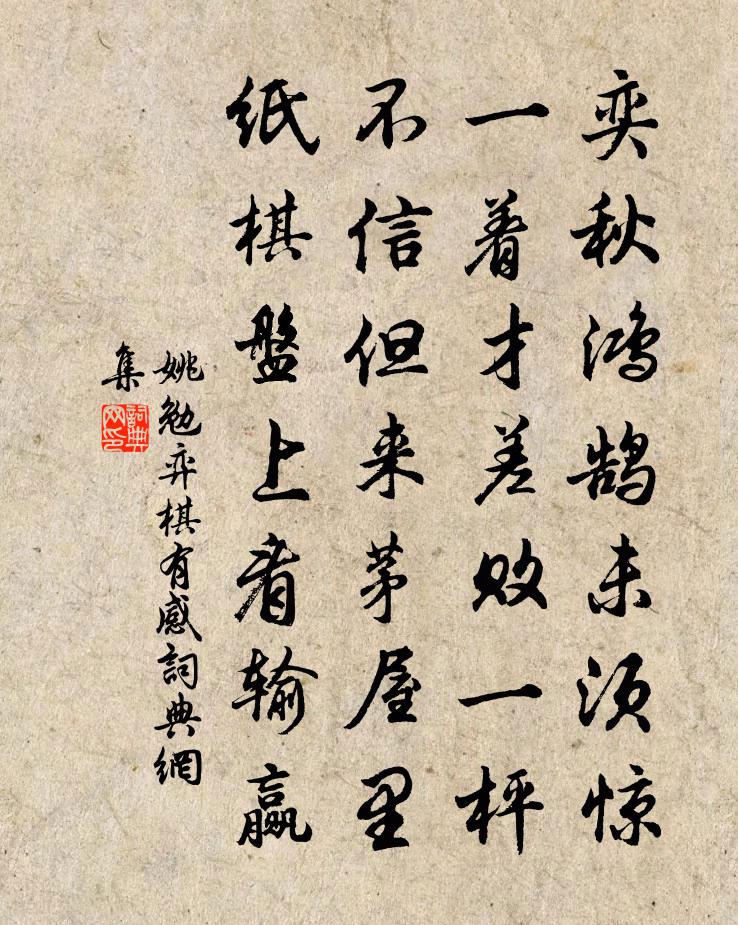 奕秋鸿鹄未须惊
一着才差败一枰
不信但来茅屋里
纸棋盤上看输赢
姚勉弈棋有感詞典網
集
詞典
网印